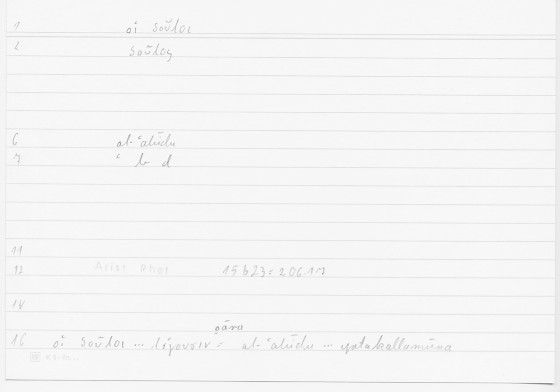 1 οἱ δοῦλοι
2 δοῦλος
6 al-ʿabīdu
7 ʿ b d
11
13 Arist Rhet 15b23 = 206.17
14
ṣāra
16 οἱ δοῦλοι ... λέγουσιν = al-ʿabīdu ... yatakallamūna